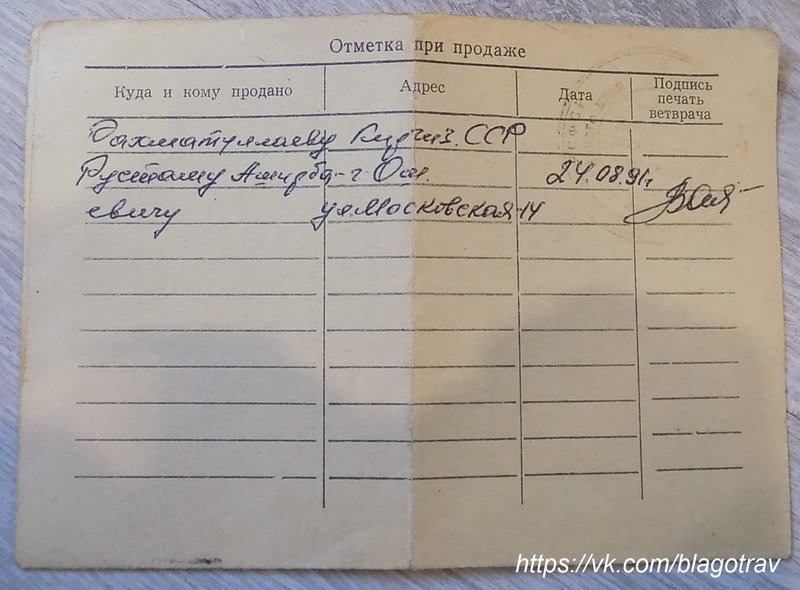 Отметка при продаже
Куда и кому продано
Адрес
Дата
Подпись
печать
ветврача
Рахматуллаеву Киргиз. ССР
Рустаму Амирба- г Ош. 24.08.91г
евичу ул Московская-14
https://vk.com/blagotrav